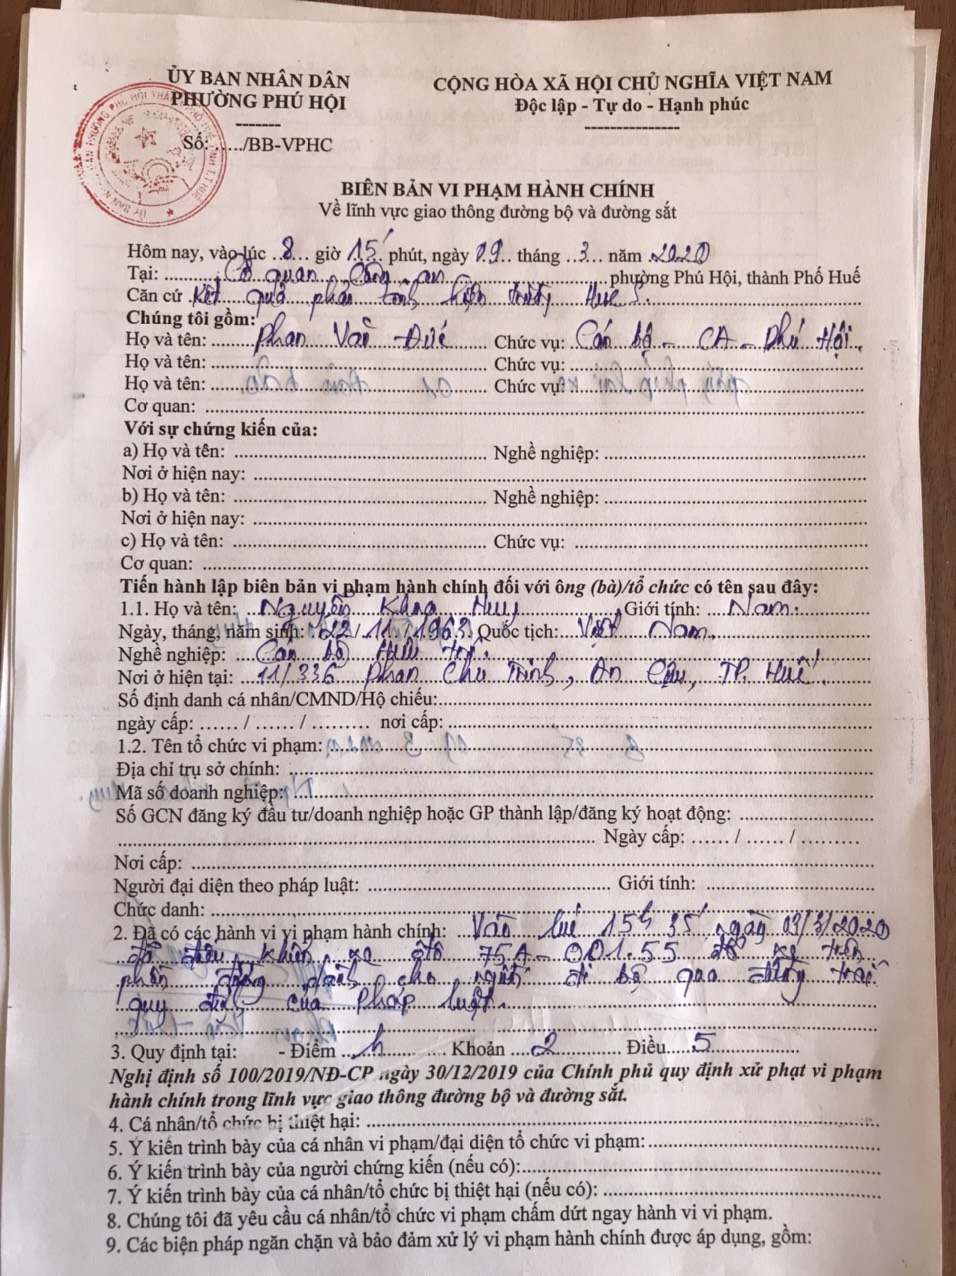 ỦY BAN NHÂN DÂN
PHƯỜNG PHÚ HỘI
CỘNG HÒA XÃ HỘI CHỦ NGHĨA VIỆT NAM
Độc lập - Tự do - Hạnh phúc
Số: ...../BB-VPHC
BIÊN BẢN VI PHẠM HÀNH CHÍNH
Về lĩnh vực giao thông đường bộ và đường sắt
Hôm nay, vào lúc 8 giờ 15 phút, ngày 09 tháng 3 năm 2020
Tại: Cơ quan Công an phường Phú Hội, thành Phố Huế
Căn cứ Kết quả phản ánh hiện trường Huế S.
Chúng tôi gồm:
Họ và tên: Phan Văn Đức Chức vụ: Cán bộ - CA - Phú Hội.
Họ và tên: Chức vụ:
Họ và tên: Chức vụ:
Cơ quan:
Với sự chứng kiến của:
a) Họ và tên: Nghề nghiệp:
Nơi ở hiện nay:
b) Họ và tên: Nghề nghiệp:
Nơi ở hiện nay:
c) Họ và tên: Chức vụ:
Cơ quan:
Tiến hành lập biên bản vi phạm hành chính đối với ông (bà)/tổ chức có tên sau đây:
1.1. Họ và tên: Nguyễn Khoa Huy Giới tính: Nam.
Ngày, tháng, năm sinh: 22/11/1963. Quốc tịch: Việt Nam.
Nghề nghiệp: Cán bộ Hưu trí.
Nơi ở hiện tại: 11/336 Phan Chu Trinh, An Cựu, TP. Huế.
Số định danh cá nhân/CMND/Hộ chiếu:
ngày cấp: ...... / ...... / ......... nơi cấp:
1.2. Tên tổ chức vi phạm:
Địa chỉ trụ sở chính:
Mã số doanh nghiệp:
Số GCN đăng ký đầu tư/doanh nghiệp hoặc GP thành lập/đăng ký hoạt động:
Ngày cấp: ...... / ...... / .........
Nơi cấp:
Người đại diện theo pháp luật: Giới tính:
Chức danh:
2. Đã có các hành vi vi phạm hành chính: Vào lúc 15h 35' ngày 03/3/2020
đã điều khiển xe ôtô 75A-001.55 đỗ xe trên
phần đường dành cho người đi bộ qua đường trái
quy định của Pháp luật.
3. Quy định tại: - Điểm h Khoản 2 Điều 5
Nghị định số 100/2019/NĐ-CP ngày 30/12/2019 của Chính phủ quy định xử phạt vi phạm
hành chính trong lĩnh vực giao thông đường bộ và đường sắt.
4. Cá nhân/tổ chức bị thiệt hại:
5. Ý kiến trình bày của cá nhân vi phạm/đại diện tổ chức vi phạm:
6. Ý kiến trình bày của người chứng kiến (nếu có):
7. Ý kiến trình bày của cá nhân/tổ chức bị thiệt hại (nếu có):
8. Chúng tôi đã yêu cầu cá nhân/tổ chức vi phạm chấm dứt ngay hành vi vi phạm.
9. Các biện pháp ngăn chặn và bảo đảm xử lý vi phạm hành chính được áp dụng, gồm: